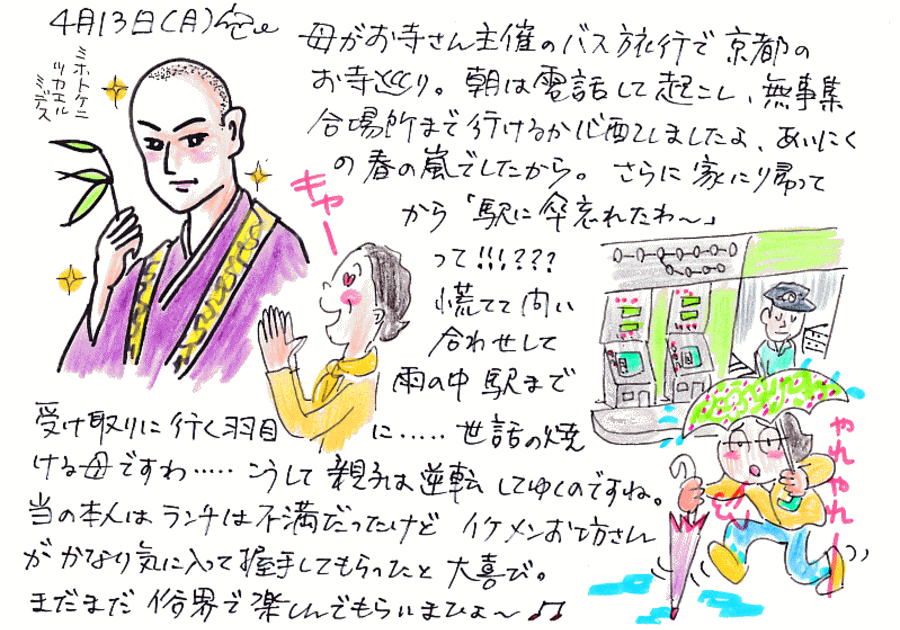 4月13日(月)
ミホトケニ
ツカエル
ミデス
母がお寺さん主催のバス旅行で京都の
お寺巡り。朝は電話して起こし、無事集
合場所まで行けるか心配しましたよ、あいにく
の春の嵐でしたから。さらに家に帰って
から「駅に傘忘れたわ〜」
って!!!???
慌てて問い
合わせして
雨の中駅まで
受け取りに行く羽目に……世話の焼
ける母ですわ……こうして親子は逆転してゆくのですね。
当の本人はランチは不満だったけどイケメンお坊さん
がかなり気に入って握手してもらったと大喜び。
まだまだ俗界で楽しんでもらいまひょ〜♪♪
キャー
やれやれー